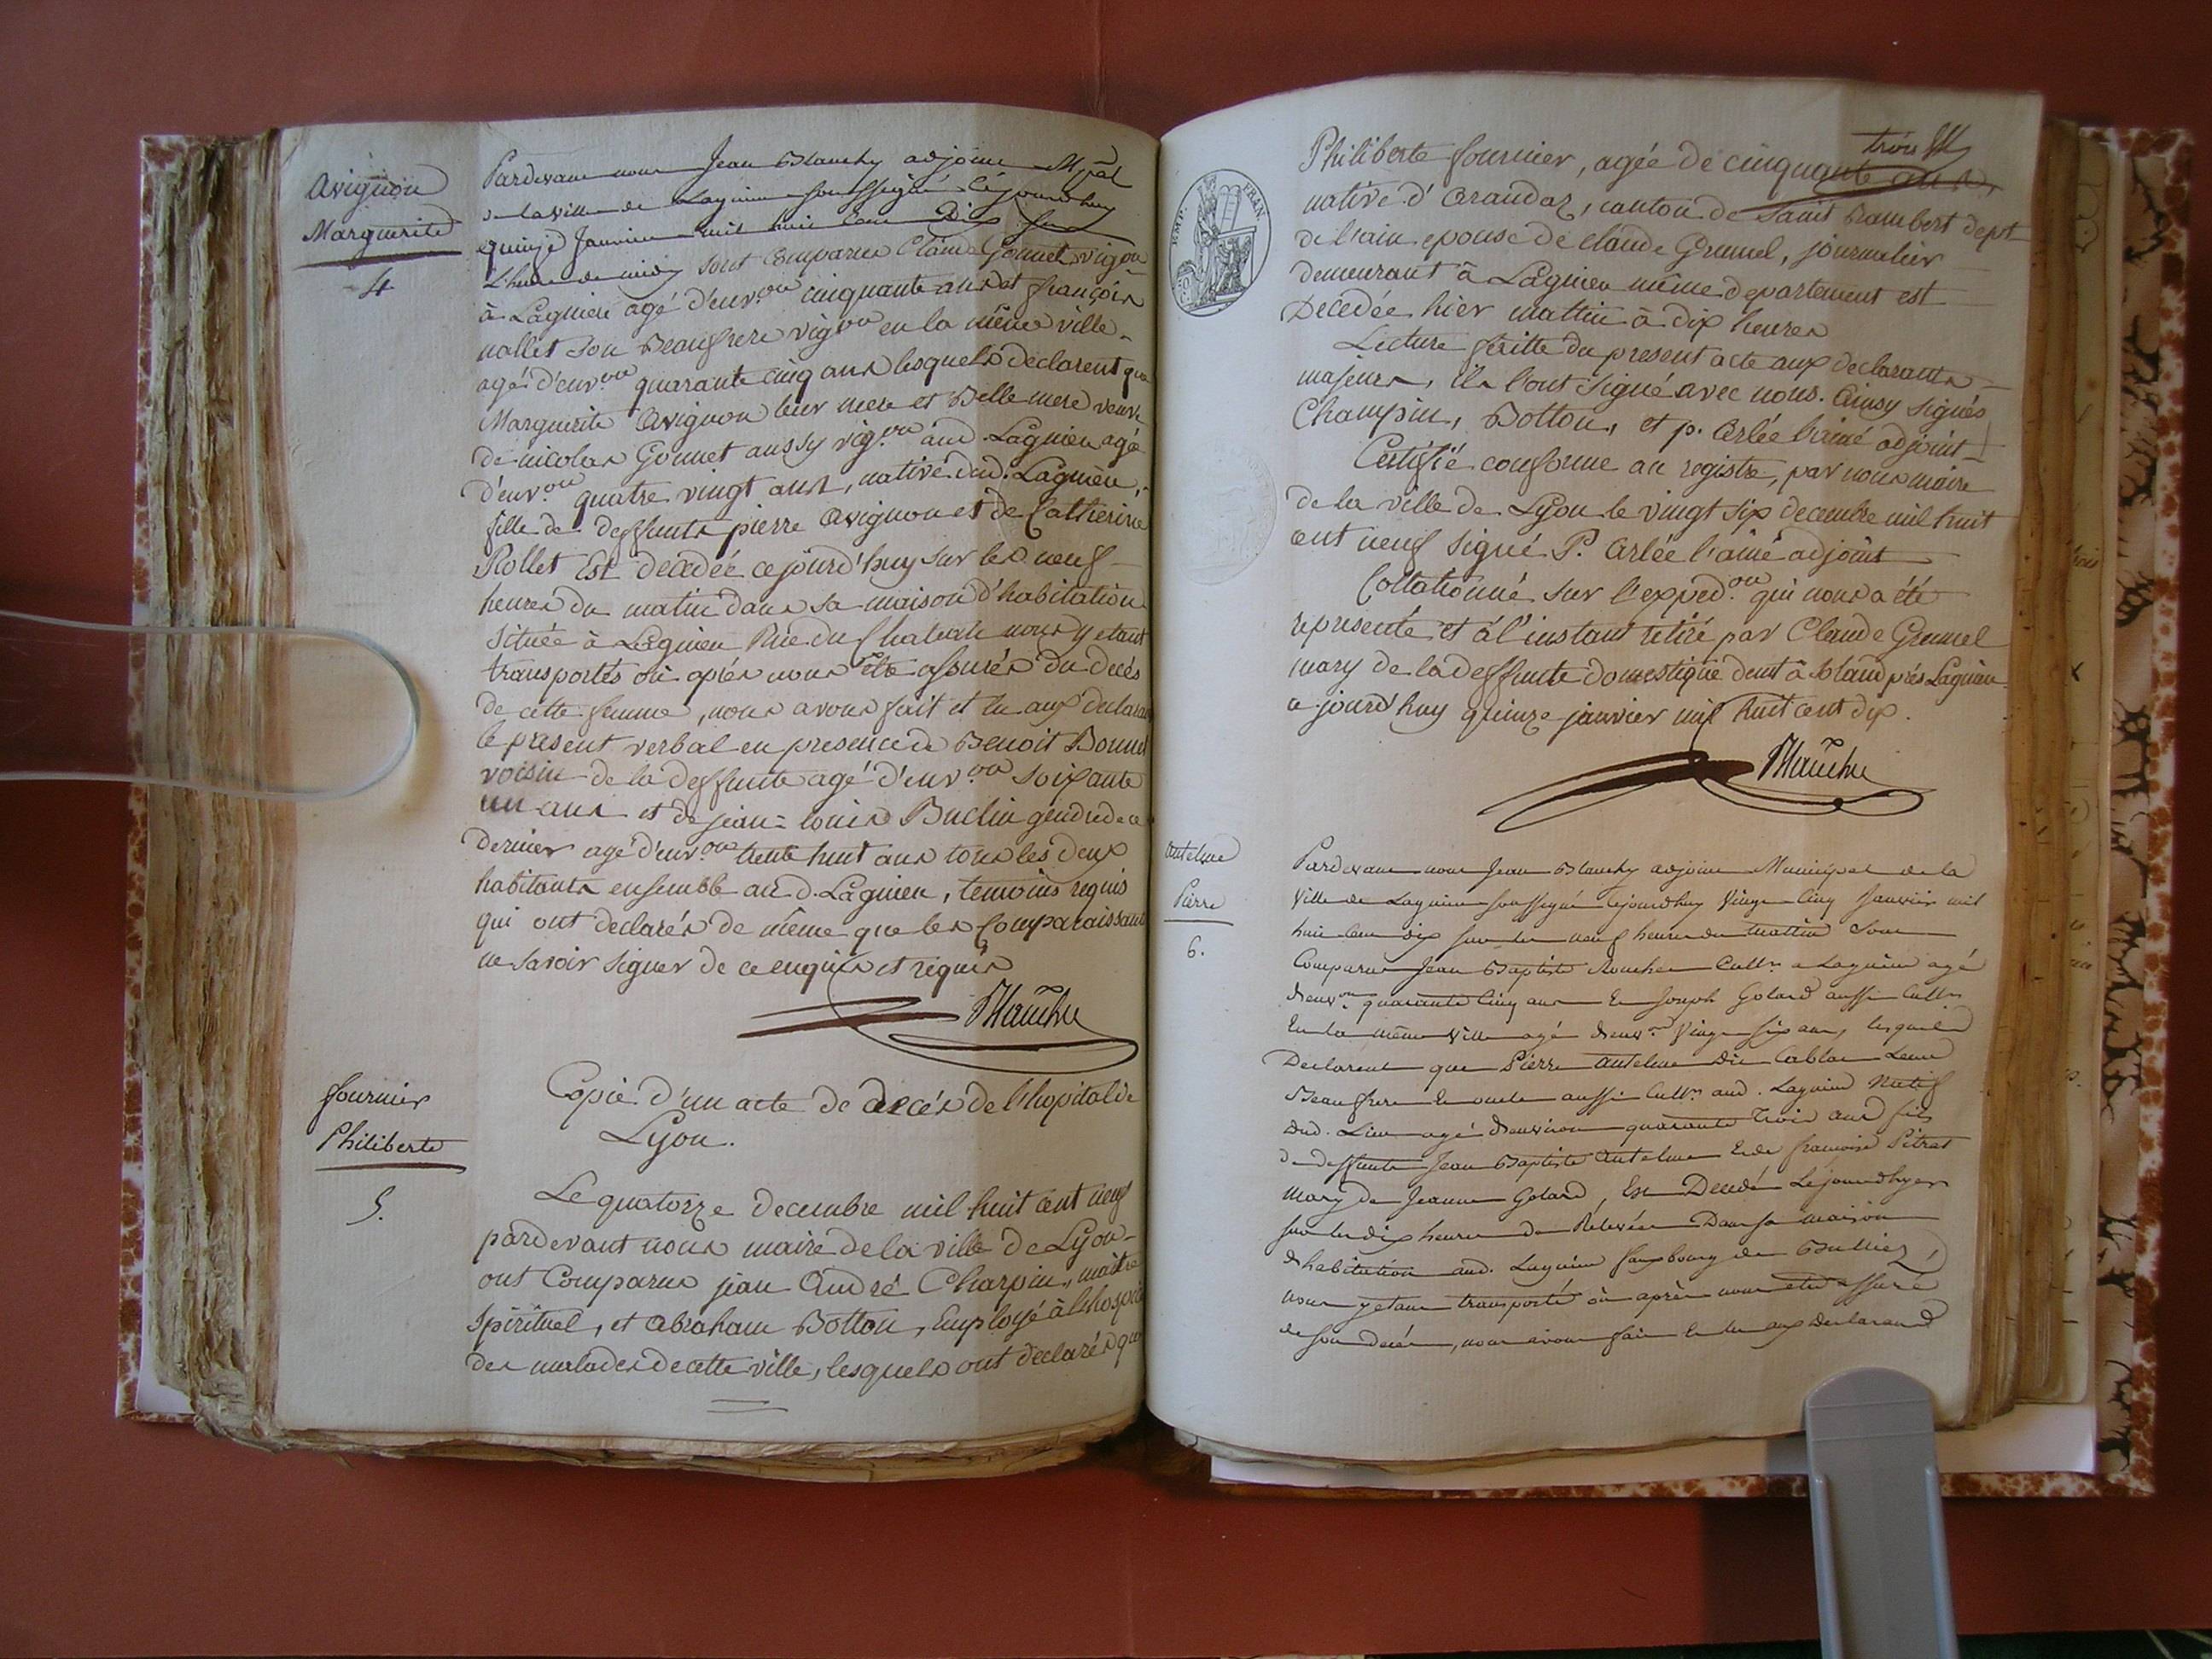 Avignon
Marguerite
4
Pardevant nous Jean Blanchy adjoint M.pal
de la ville de Lagnieu soussigné cejourdhuy
quinze Janvier mil huit cent Dix sur
L'heure de midy sont comparus Claude Gonnet vig.on
à Lagnieu agé d'env.on cinquante ans et françois
vallet son Beaufrere vig.on en la même ville
agé d'env.on quarante cinq ans lesquels declarent que
Marguerite Avignon leur mere et Belle mere veuve
de nicolas Gonnet aussy vig.on aud. Lagnieu agée
d'env.on quatre vingt ans, native dud. Lagnieu,
fille de deffunts pierre Avignon et de Catherine
Rollet Est decedée cejourd'huy sur les neuf
heures du matin dans sa maison d'habitation
située à Lagnieu Rue du nous y etant
transportés où aprés nous être assurés du decés
de cette femme, nous avons fait et lu aux declarans
le present verbal en presence de Benoit Bonnet
voisin de la deffunte agé d'env.on soixante
un ans et de jean=louis Buclin gendre de ce
dernier agé d'env.on trente huit ans tous les deux
habitants ensemble aud. Lagnieu, temoins requis
qui ont declarés de même que les Comparaissants
ne savoir signer de ce enquis et requis
Blanchy
fournier
Philiberte
5.
Copie d'un acte de decés de l'hopital de
Lyon.
Le quatorze decembre mil huit cent neuf
pardevant nous maire de la ville de Lyon
ont Comparus jean André Charpin, maitre
Spirituel, et abraham Botton, Employé à l'hospice
des malades de cette ville, lesquels ont declarés que
EMP. FRAN.
Philiberte fournier, agée de cinquante ans trois
native d'arandaz, canton de Saint Rambert dept
de l'ain epouse de claude Grumel, journalier
demeurant à Lagnieu même departement est
Decedée hier mattin à dix heures
Lecture faitte du present acte aux declarants
majeurs, ils l'ont signé avec nous. Ainsy signés
Champin, Botton, et p. Arlée l'ainé adjoint
Certifié conforme au registre, par nous maire
de la ville de Lyon le vingt six decembre mil huit
cent neuf signé P. Arlée l'ainé adjoint
Collationné sur l'exped.on qui nous a été
representé et à l'instant retiré par Claude Grumel
mary de la deffunte domestique à près Lagnieu
cejourd'huy quinze janvier mil huit cent dix.
Blanchy
Antelme
Pierre
6.
Pardevant nous Jean Blanchy adjoint Municipal de la
Ville de Lagnieu soussigné cejourdhuy Vingt Cinq Janvier mil
huit cent dix sur les neuf heures du mattin sont
Comparus Jean Baptiste Cult.r a Lagnieu agé
denv.on quarante Cinq ans Et Joseph Golard aussi Cult.r
En la même Ville agé denv.on Vingt six ans, lesquels
Declarent que Pierre Antelme Dit Leur
Beaufrere Et oncle aussi Cult.r aud. Lagnieu Natif
Dud. Lieu agé denviron quarante Trois ans fils
de deffunts Jean Baptiste Antelme Et de francoise Pitrat
mary de Jeanne Golard, Est Decedé Lejourdhyer
sur les dix heures de Relevée Dans sa maison
dhabitation aud. Lagnieu fauxbourg de
nous y etant transporté où après nous être assuré
de son decés, nous avons fait Et lu aux Declarand